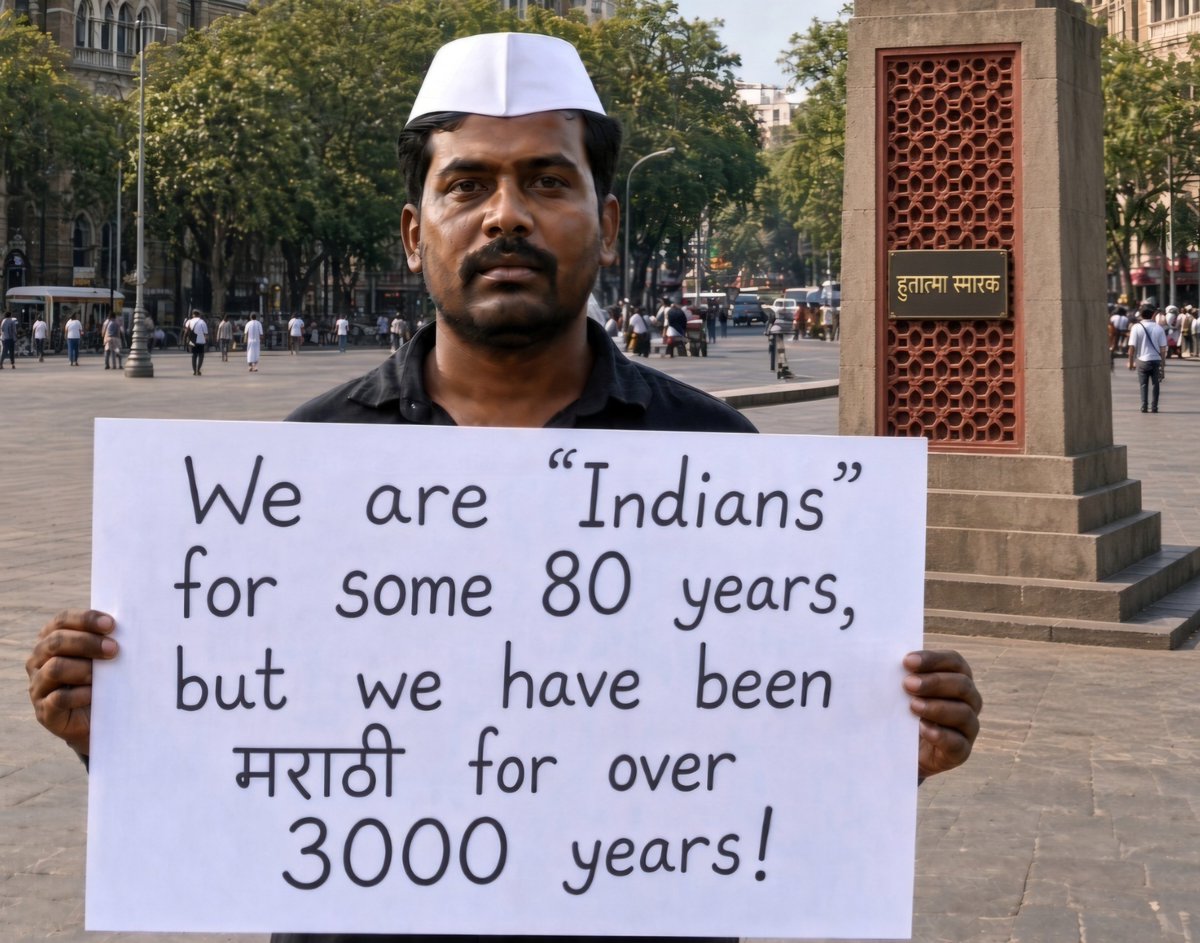 हुतात्मा स्मारक
We are “Indians”
for some 80 years,
but we have been
मराठी for over
3000 years!